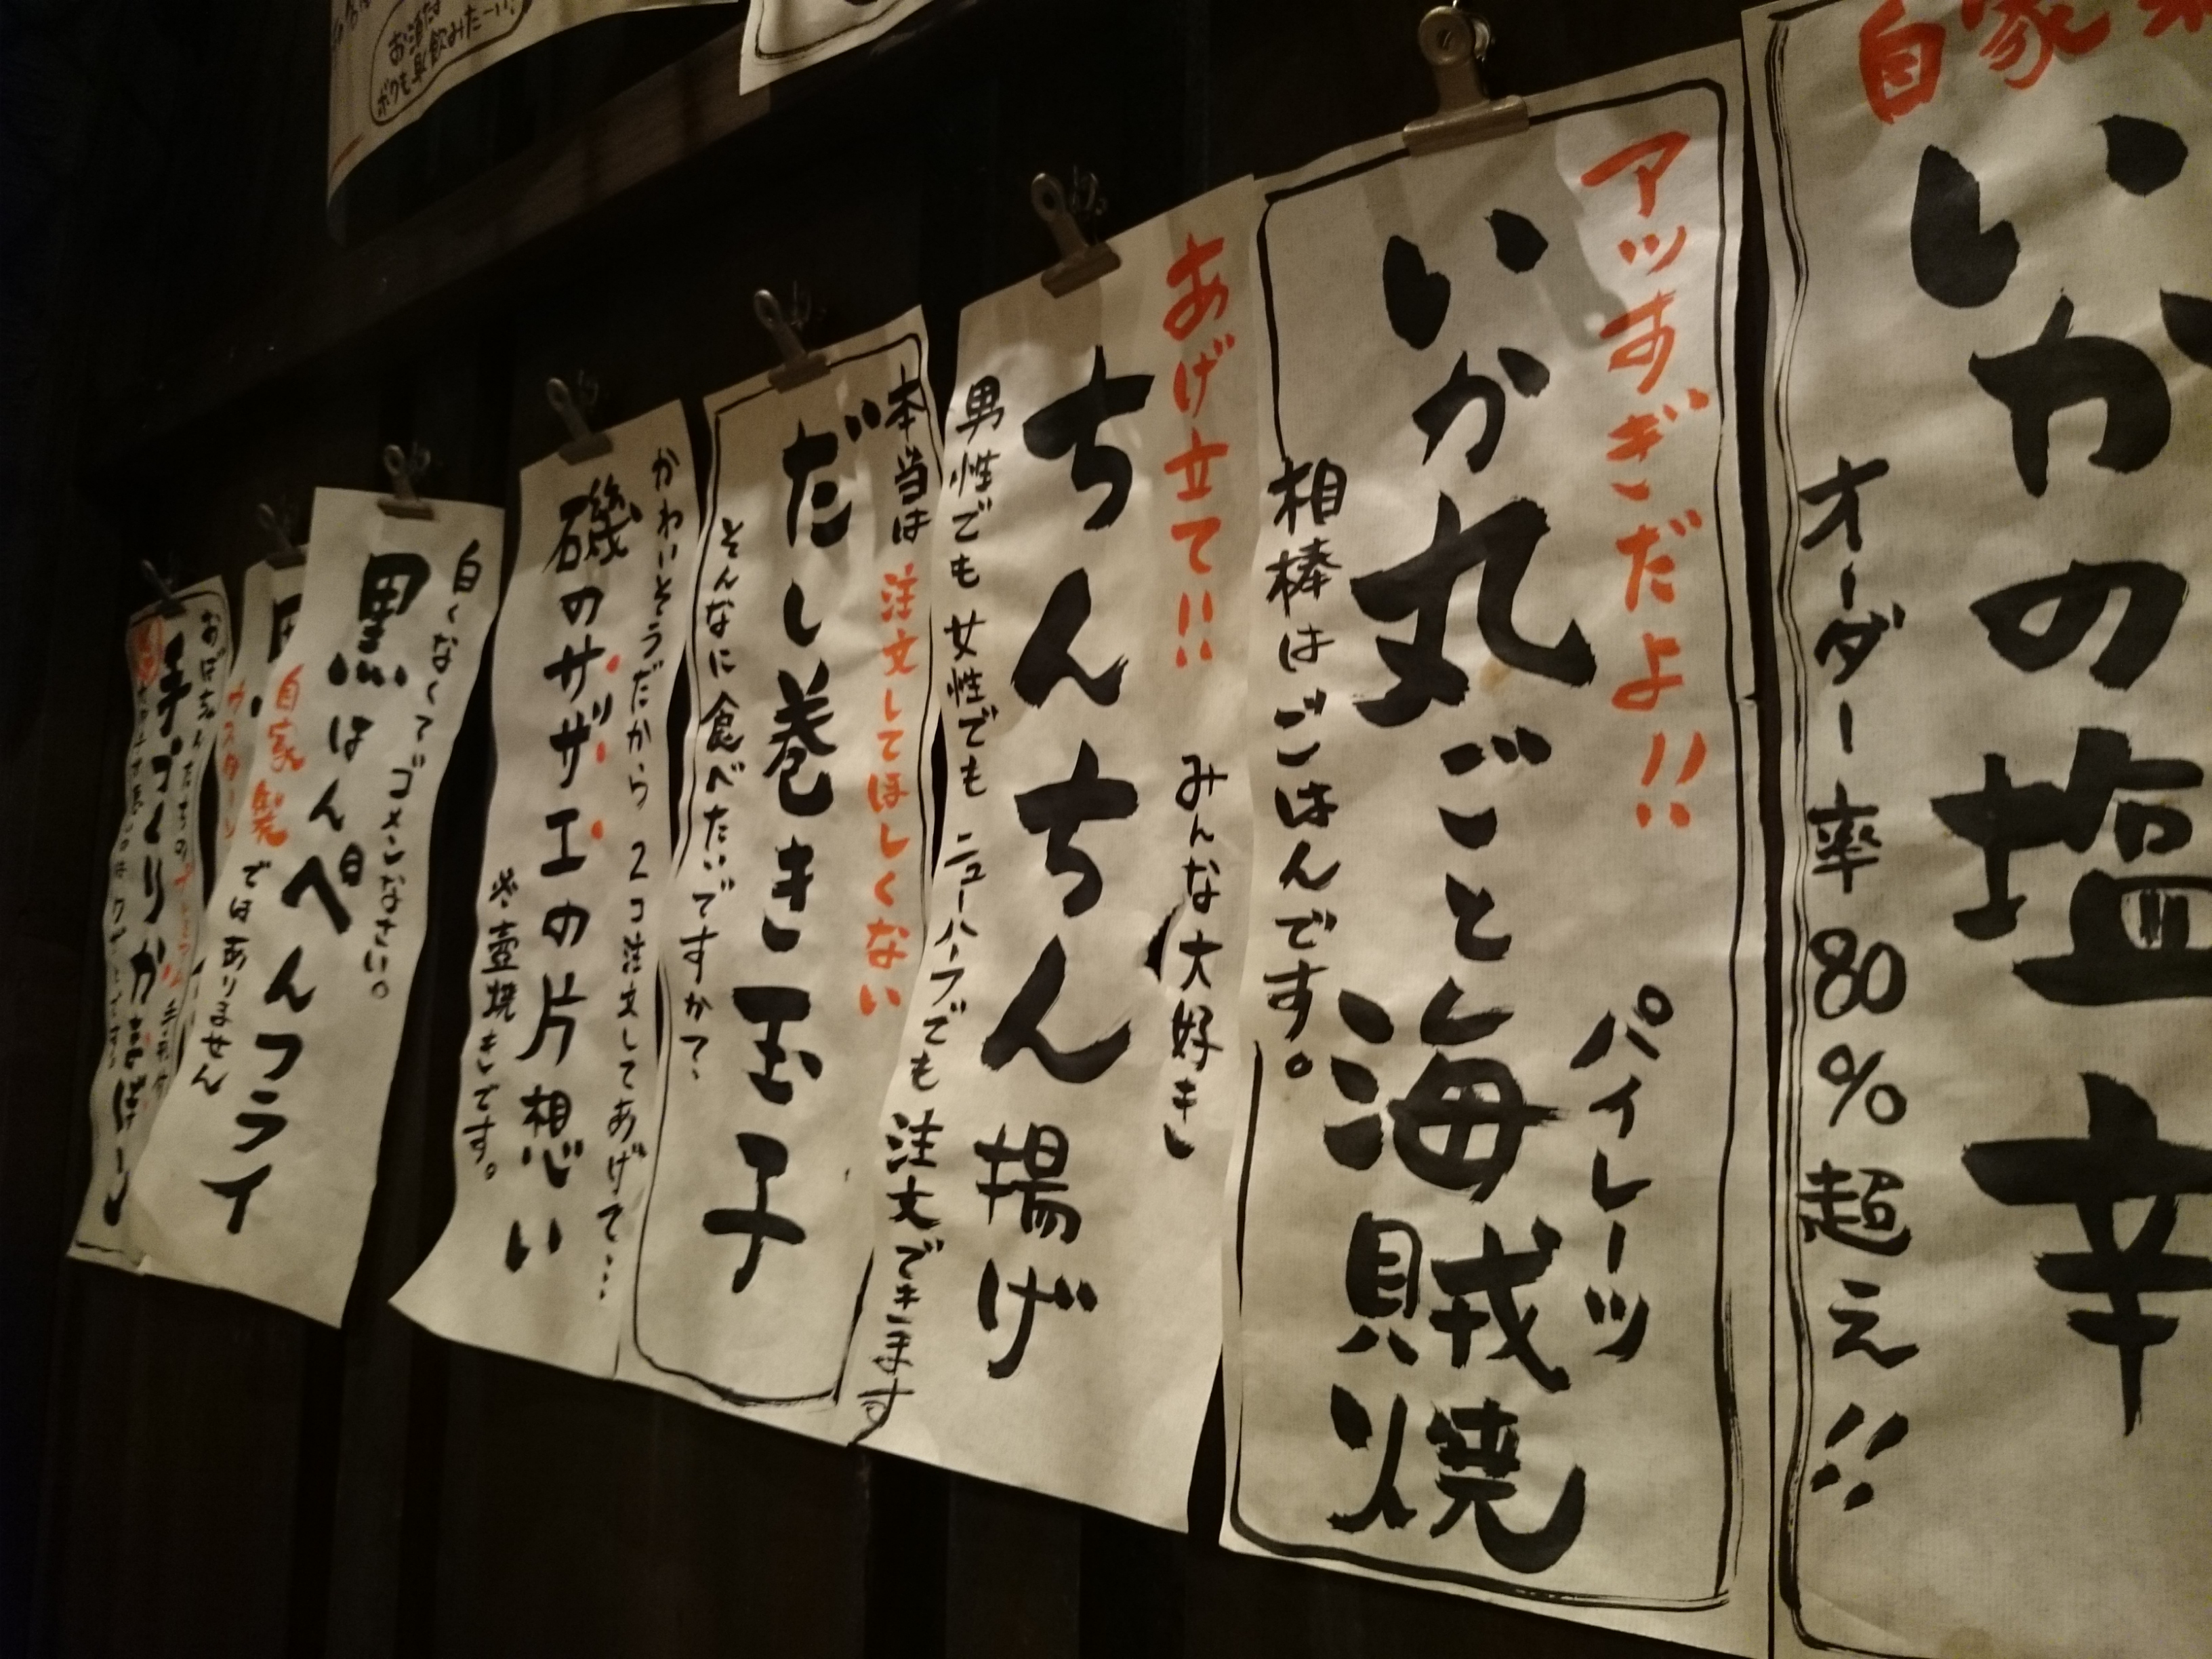 お酒
ボクも早く飲みたーい！
自家
いかの塩辛
オーダー率80％超え!!
アッすぎだよ!!
パイレーツ
いか丸ごと海賊焼
相棒はごはんです。
あげ立て!!
みんな大好き
ちんちん揚げ
男性でも女性でもニューハーフでも注文できます
本当は注文してほしくない
だし巻き玉子
そんなに食べたいですか？
かわいそうだから2コ注文してあげて…
磯のサザエの片想い
※壺焼きです。
白くなくてゴメンなさい。
黒はんぺんフライ
自家製ではありません
手づくりかまぼこ